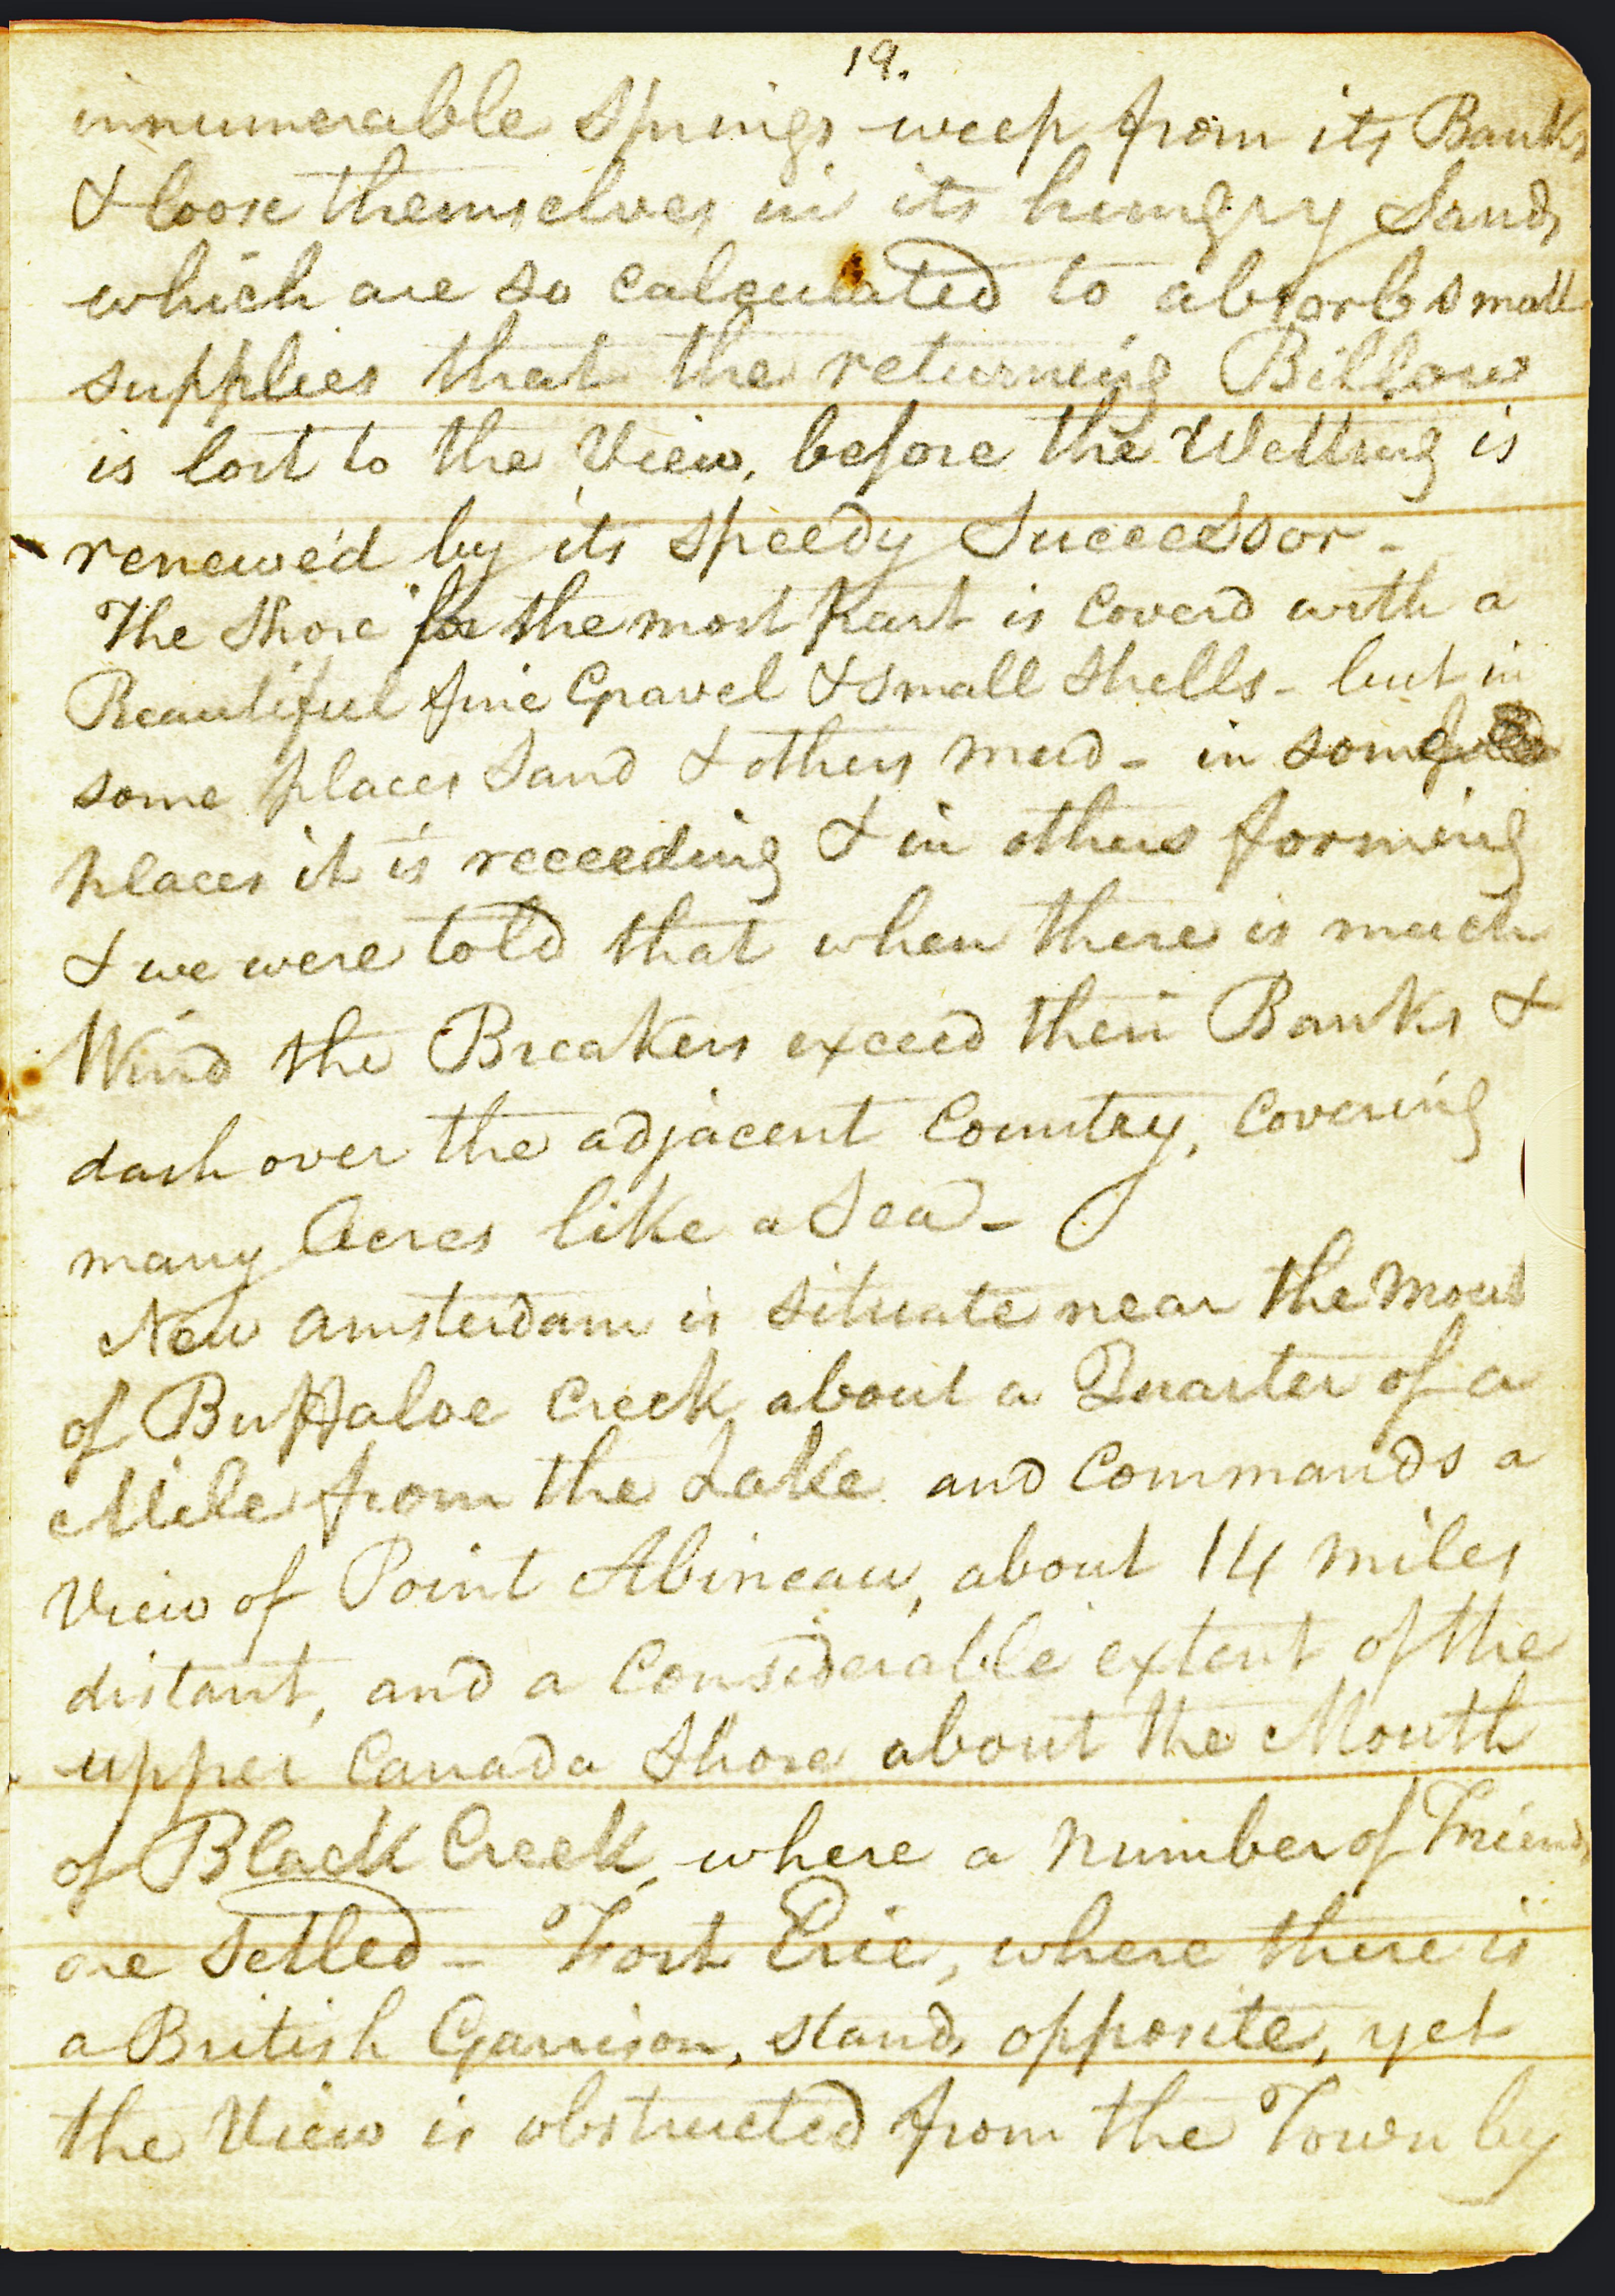 19.
innumerable Springs weep from its Banks
& loose themselves in its hungry Sands
which are so calculated to absorb small
supplies that the returning Billow
is lost to the View, before the Wetting is
renewe'd by its speedy Successor -
The Shore for the most part is Coverd with a
Beautiful fine Gravel & small Shells - but in
some places Sand & others mud - in some
places it is receeding & in others forming
& we were told that when there is much
Wind the Breakers exceed their Banks &
dash over the adjacent Country, Covering
many Acres like a Sea -
New Amsterdam is situate near the Mout
of Buffaloe Creek about a Quarter of a
Mile from the Lake and Commands a
View of Point Abineau, about 14 miles
distant, and a Considerable extent of the
upper Canada Shore about the Mouth
of Black Creek, where a number of Friends
are Setled - Fort Erie, where there is
a British Garrison, stands opposite, yet
the View is obstructed from the Town by